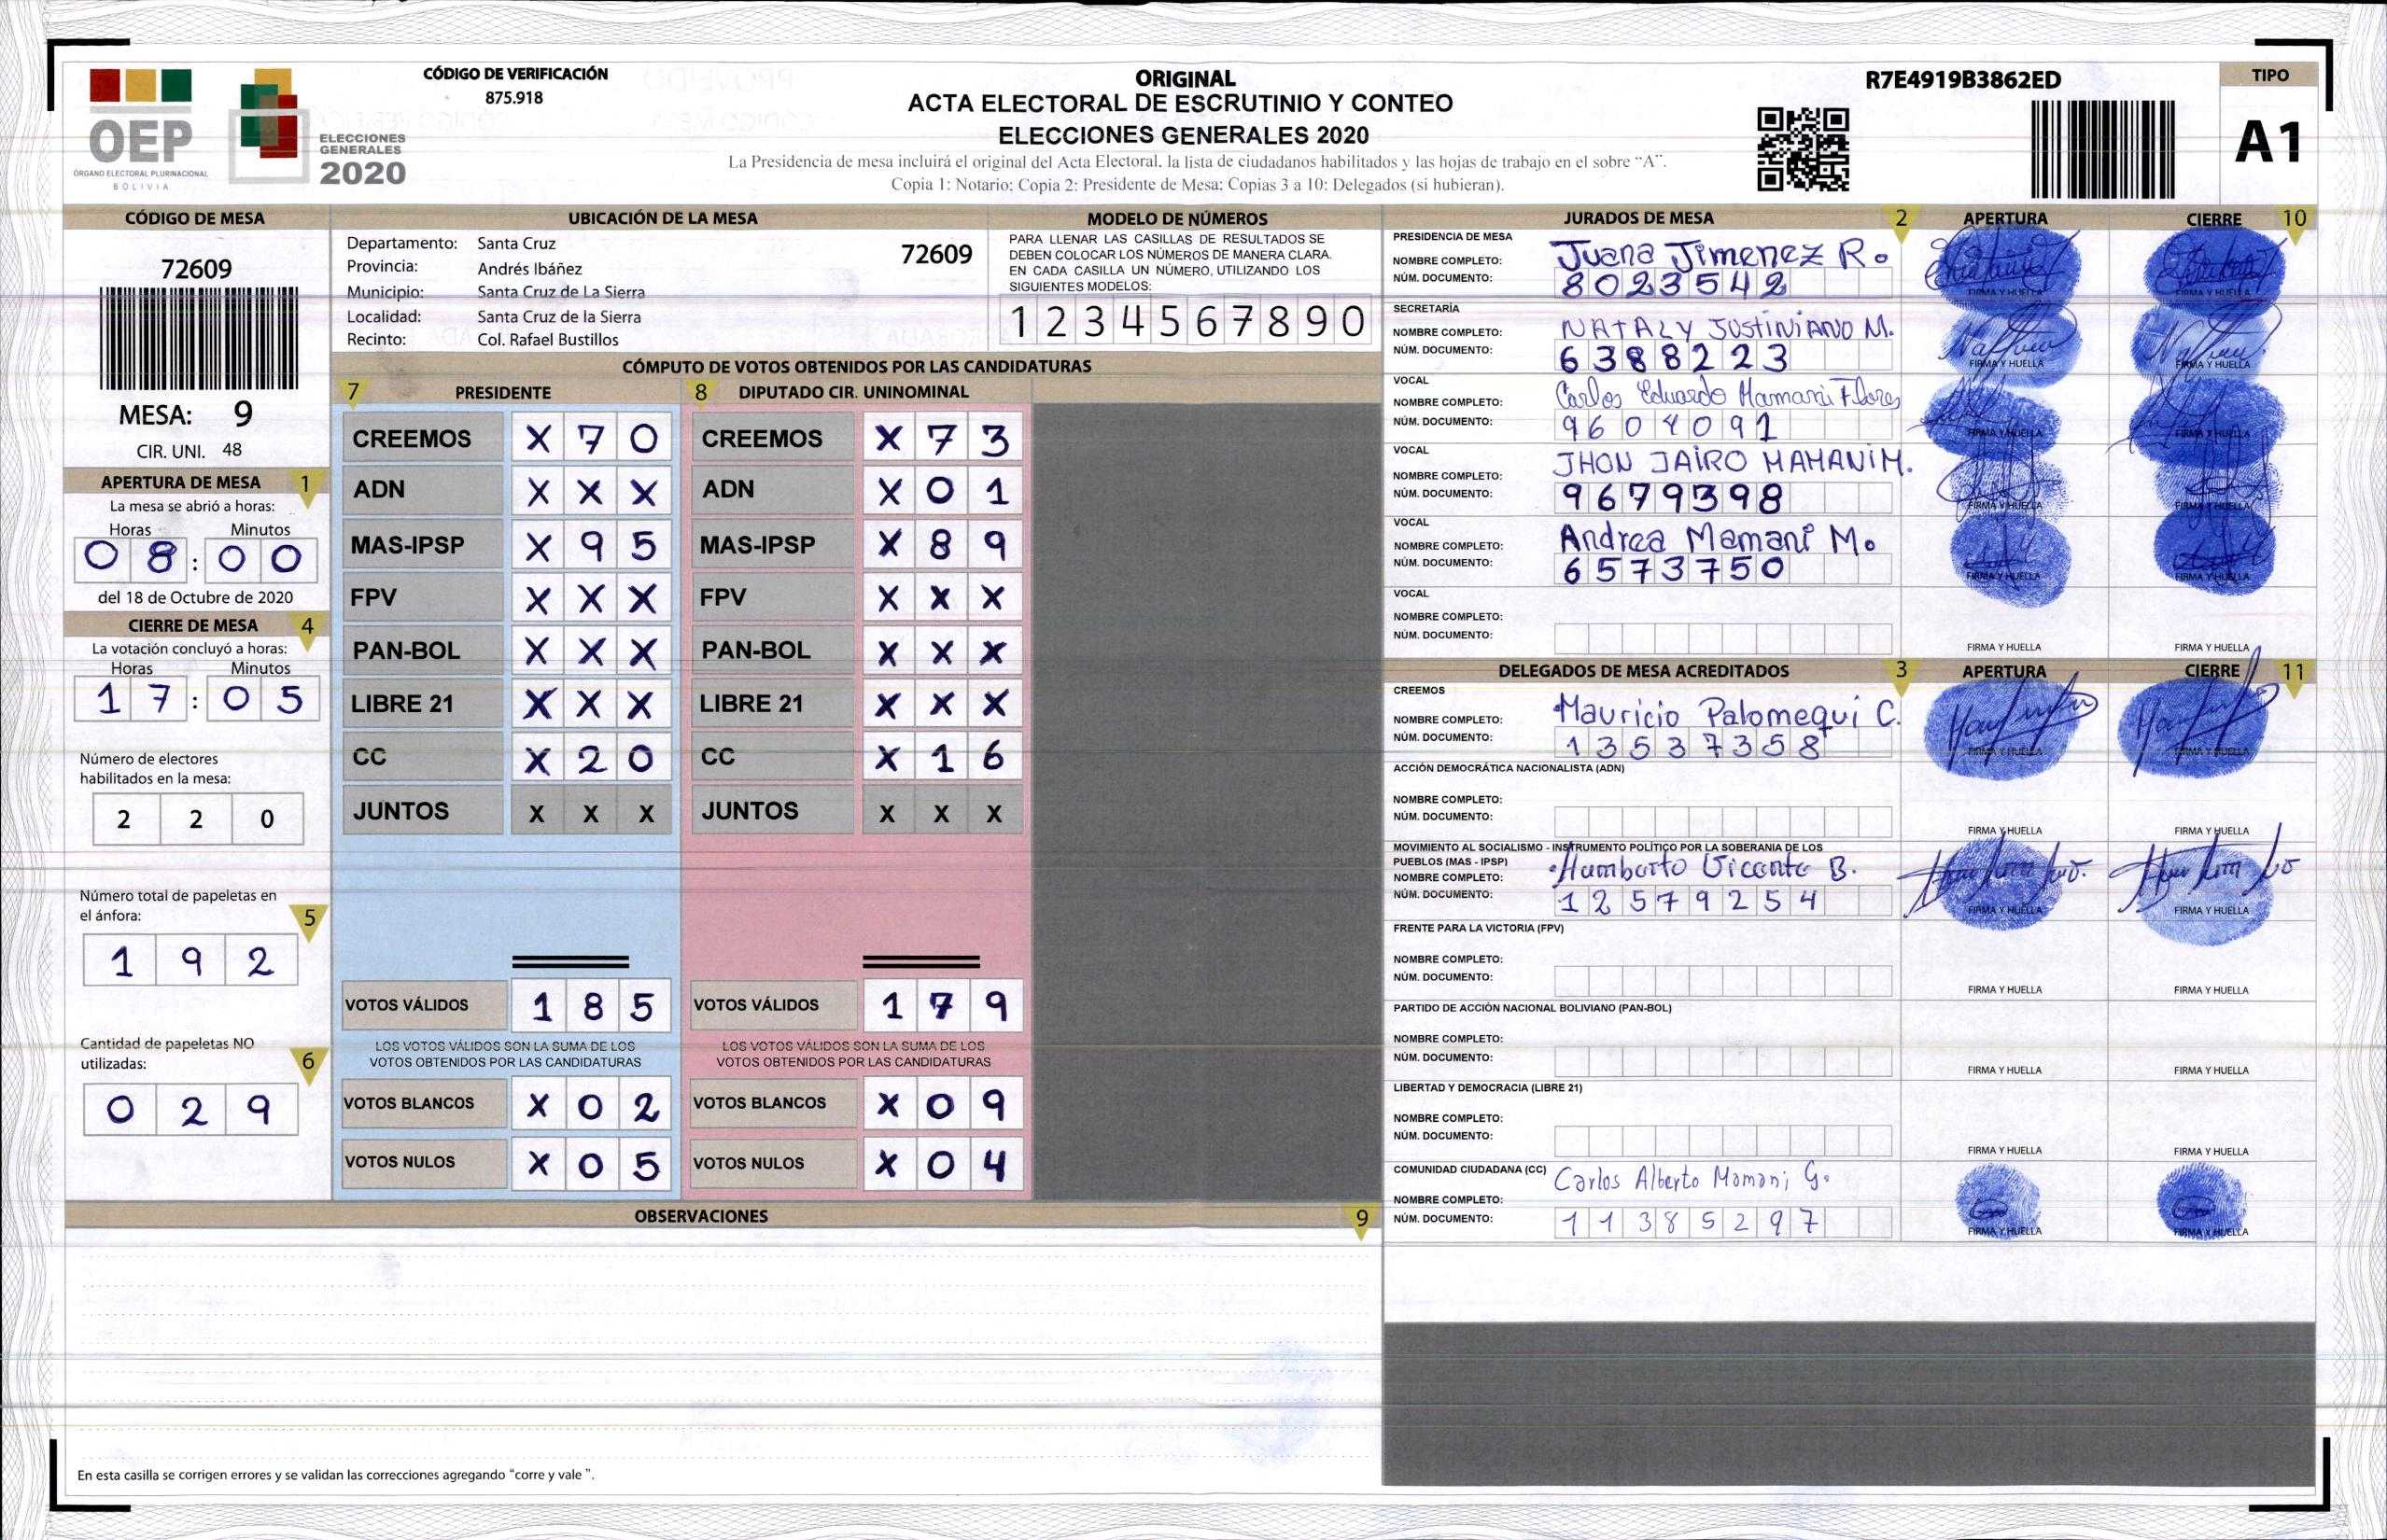 OEP
ÓRGANO ELECTORAL PLURINACIONAL
BOLIVIA
ELECCIONES
GENERALES
2020
CÓDIGO DE VERIFICACIÓN
875.918
ORIGINAL
ACTA ELECTORAL DE ESCRUTINIO Y CONTEO
ELECCIONES GENERALES 2020
La Presidencia de mesa incluirá el original del Acta Electoral, la lista de ciudadanos habilitados y las hojas de trabajo en el sobre “A”.
Copia 1: Notario; Copia 2: Presidente de Mesa; Copias 3 a 10: Delegados (si hubieran).
R7E4919B3862ED
TIPO
A1
CÓDIGO DE MESA
72609
MESA: 9
CIR. UNI. 48
APERTURA DE MESA 1
La mesa se abrió a horas:
Horas Minutos
0 8 : 0 0
del 18 de Octubre de 2020
CIERRE DE MESA 4
La votación concluyó a horas:
Horas Minutos
1 7 : 0 5
Número de electores
habilitados en la mesa:
2 2 0
Número total de papeletas en
el ánfora: 5
1 9 2
Cantidad de papeletas NO
utilizadas: 6
0 2 9
UBICACIÓN DE LA MESA
Departamento: Santa Cruz 72609
Provincia: Andrés Ibáñez
Municipio: Santa Cruz de La Sierra
Localidad: Santa Cruz de la Sierra
Recinto: Col. Rafael Bustillos
MODELO DE NÚMEROS
PARA LLENAR LAS CASILLAS DE RESULTADOS SE
DEBEN COLOCAR LOS NÚMEROS DE MANERA CLARA.
EN CADA CASILLA UN NÚMERO, UTILIZANDO LOS
SIGUIENTES MODELOS:
1 2 3 4 5 6 7 8 9 0
CÓMPUTO DE VOTOS OBTENIDOS POR LAS CANDIDATURAS
7 PRESIDENTE 8 DIPUTADO CIR. UNINOMINAL
CREEMOS X 7 0 CREEMOS X 7 3
ADN X X X ADN X 0 1
MAS-IPSP X 9 5 MAS-IPSP X 8 9
FPV X X X FPV X X X
PAN-BOL X X X PAN-BOL X X X
LIBRE 21 X X X LIBRE 21 X X X
CC X 2 0 CC X 1 6
JUNTOS X X X JUNTOS X X X
VOTOS VÁLIDOS 1 8 5 VOTOS VÁLIDOS 1 7 9
LOS VOTOS VÁLIDOS SON LA SUMA DE LOS LOS VOTOS VÁLIDOS SON LA SUMA DE LOS
VOTOS OBTENIDOS POR LAS CANDIDATURAS VOTOS OBTENIDOS POR LAS CANDIDATURAS
VOTOS BLANCOS X 0 2 VOTOS BLANCOS X 0 9
VOTOS NULOS X 0 5 VOTOS NULOS X 0 4
OBSERVACIONES 9
En esta casilla se corrigen errores y se validan las correcciones agregando “corre y vale ”.
JURADOS DE MESA 2 APERTURA CIERRE 10
PRESIDENCIA DE MESA
NOMBRE COMPLETO: Juana Jimenez R.
NÚM. DOCUMENTO: 8023542
FIRMA Y HUELLA FIRMA Y HUELLA
SECRETARÍA
NOMBRE COMPLETO: NATALY JUSTINIANO M.
NÚM. DOCUMENTO: 6388223
FIRMA Y HUELLA FIRMA Y HUELLA
VOCAL
NOMBRE COMPLETO: Carlos Eduardo Mamani Flores
NÚM. DOCUMENTO: 9604091
FIRMA Y HUELLA FIRMA Y HUELLA
VOCAL
NOMBRE COMPLETO: JHON JAIRO MAMANI M.
NÚM. DOCUMENTO: 9679398
FIRMA Y HUELLA FIRMA Y HUELLA
VOCAL
NOMBRE COMPLETO: Andrea Mamani M.
NÚM. DOCUMENTO: 6573750
FIRMA Y HUELLA FIRMA Y HUELLA
VOCAL
NOMBRE COMPLETO:
NÚM. DOCUMENTO:
FIRMA Y HUELLA FIRMA Y HUELLA
DELEGADOS DE MESA ACREDITADOS 3 APERTURA CIERRE 11
CREEMOS
NOMBRE COMPLETO: Mauricio Palomequi C.
NÚM. DOCUMENTO: 13537358
FIRMA Y HUELLA FIRMA Y HUELLA
ACCIÓN DEMOCRÁTICA NACIONALISTA (ADN)
NOMBRE COMPLETO:
NÚM. DOCUMENTO:
FIRMA Y HUELLA FIRMA Y HUELLA
MOVIMIENTO AL SOCIALISMO - INSTRUMENTO POLÍTICO POR LA SOBERANIA DE LOS
PUEBLOS (MAS - IPSP)
NOMBRE COMPLETO: Humberto Vicente B.
NÚM. DOCUMENTO: 12579254
FIRMA Y HUELLA FIRMA Y HUELLA
FRENTE PARA LA VICTORIA (FPV)
NOMBRE COMPLETO:
NÚM. DOCUMENTO:
FIRMA Y HUELLA FIRMA Y HUELLA
PARTIDO DE ACCIÓN NACIONAL BOLIVIANO (PAN-BOL)
NOMBRE COMPLETO:
NÚM. DOCUMENTO:
FIRMA Y HUELLA FIRMA Y HUELLA
LIBERTAD Y DEMOCRACIA (LIBRE 21)
NOMBRE COMPLETO:
NÚM. DOCUMENTO:
FIRMA Y HUELLA FIRMA Y HUELLA
COMUNIDAD CIUDADANA (CC) Carlos Alberto Mamani G.
NOMBRE COMPLETO:
NÚM. DOCUMENTO: 11385297
FIRMA Y HUELLA FIRMA Y HUELLA